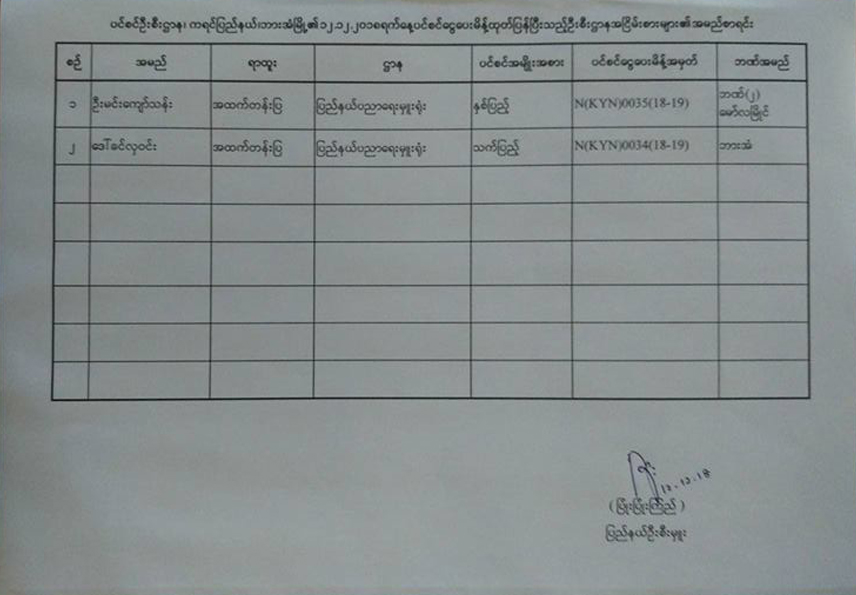 ပင်စင်ဦးစီးဌာန၊ ကရင်ပြည်နယ်၊ဘားအံမြို့၏၁၂.၁၂.၂၀၁၈ရက်နေ့ပင်စင်ငွေပေးမိန့်ထုတ်ပြန်ပြီးသည့်ဦးစီးဌာနအငြိမ်းစားများ၏အမည်စာရင်း
စဉ် အမည် ရာထူး ဌာန ပင်စင်အမျိုးအစား ပင်စင်ငွေပေးမိန့်အမှတ် ဘဏ်အမည်
၁ ဦးမင်းကျော်သန်း အထက်တန်းပြ ပြည်နယ်ပညာရေးမှူးရုံး နှစ်ပြည့် N(KYN)0035(18-19) ဘဏ်(၂) မော်လမြိုင်
၂ ဒေါ်ခင်လှဝင်း အထက်တန်းပြ ပြည်နယ်ပညာရေးမှူးရုံး သက်ပြည့် N(KYN)0034(18-19) ဘားအံ
12.12.18
( ဖြိုးဖြိုးကြည် )
ပြည်နယ်ဦးစီးမှူး